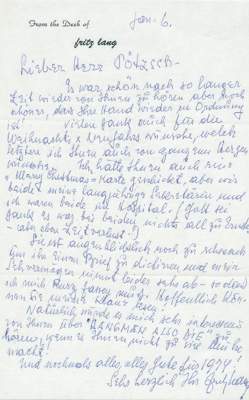 From the Desk of
fritz lang
Jan. 6.
Lieber Herr Pötzsch -
Es war schön nach so langer
Zeit wieder von Ihnen zu hören aber noch
schöner, dass Ihre Hand wieder in Ordnung
ist! Vielen Dank auch für die
Weihnachts & Neujahrs wünsche, welch
letztere ich Ihnen auch von ganzem Herzen
wünsche. Ich hätte Ihnen auch eine
"Merry Christmas" Karte gesendet, aber wir
beide: meine langjährige Sekretärin und
ich waren beide im Hospital. (Gott sei
Dank es war bei beiden nichts
- aber Zeitverlust!)
Sie ist augenblicklich noch zu schwach
um ihr einen Brief zu diktieren und mein
nimmt leider sehr ab - so dass
ich mich kurz fassen muss. Hoffentlich
Natürlich würde es mich sehr interessieren
von Ihnen über "HANGMEN ALSO DIE" zu
hören, wenn es Ihnen nicht zu viel Mühe
macht!
Und nochmals alles, alles Gute für 1974!
Sehr herzlich Ihr Fritz Lang